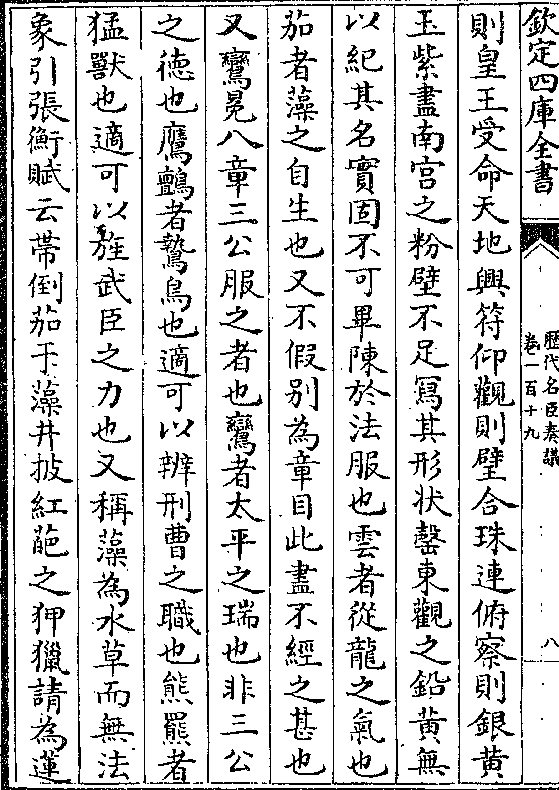 欽定四庫全書
歷代名臣奏議
卷一百十九
八
則皇王受命天地興符仰觀則壁合珠連俯察則銀黃
玉紫盡南宮之粉壁不足寫其形状罄東觀之鉛黃無
以紀其名實固不可畢陳於法服也雲者從龍之氣也
茄者藻之自生也又不假別為章目此盡不經之甚也
又鸞冕八章三公服之者也鸞者太平之瑞也非三公
之徳也鷹鸇者鷙鳥也適可以辨刑曹之職也熊羆者
猛獸也適可以旌武臣之力也又稱藻為水草而無法
象引張衡賦云蔕倒茄于藻井披紅葩之狎獵請為蓮